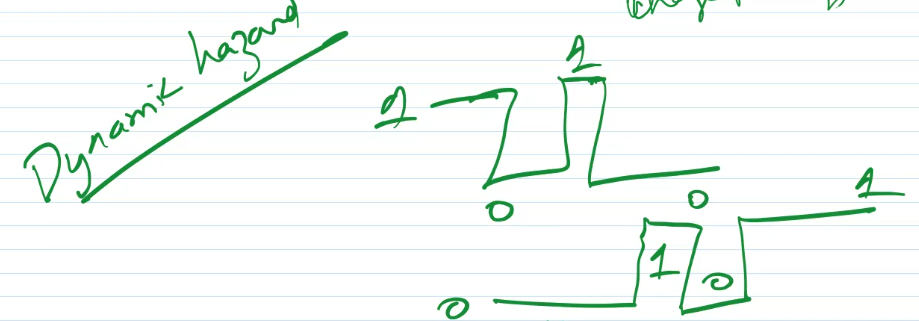 Dynamic hazard
1
1
0
0
1
1
0
0